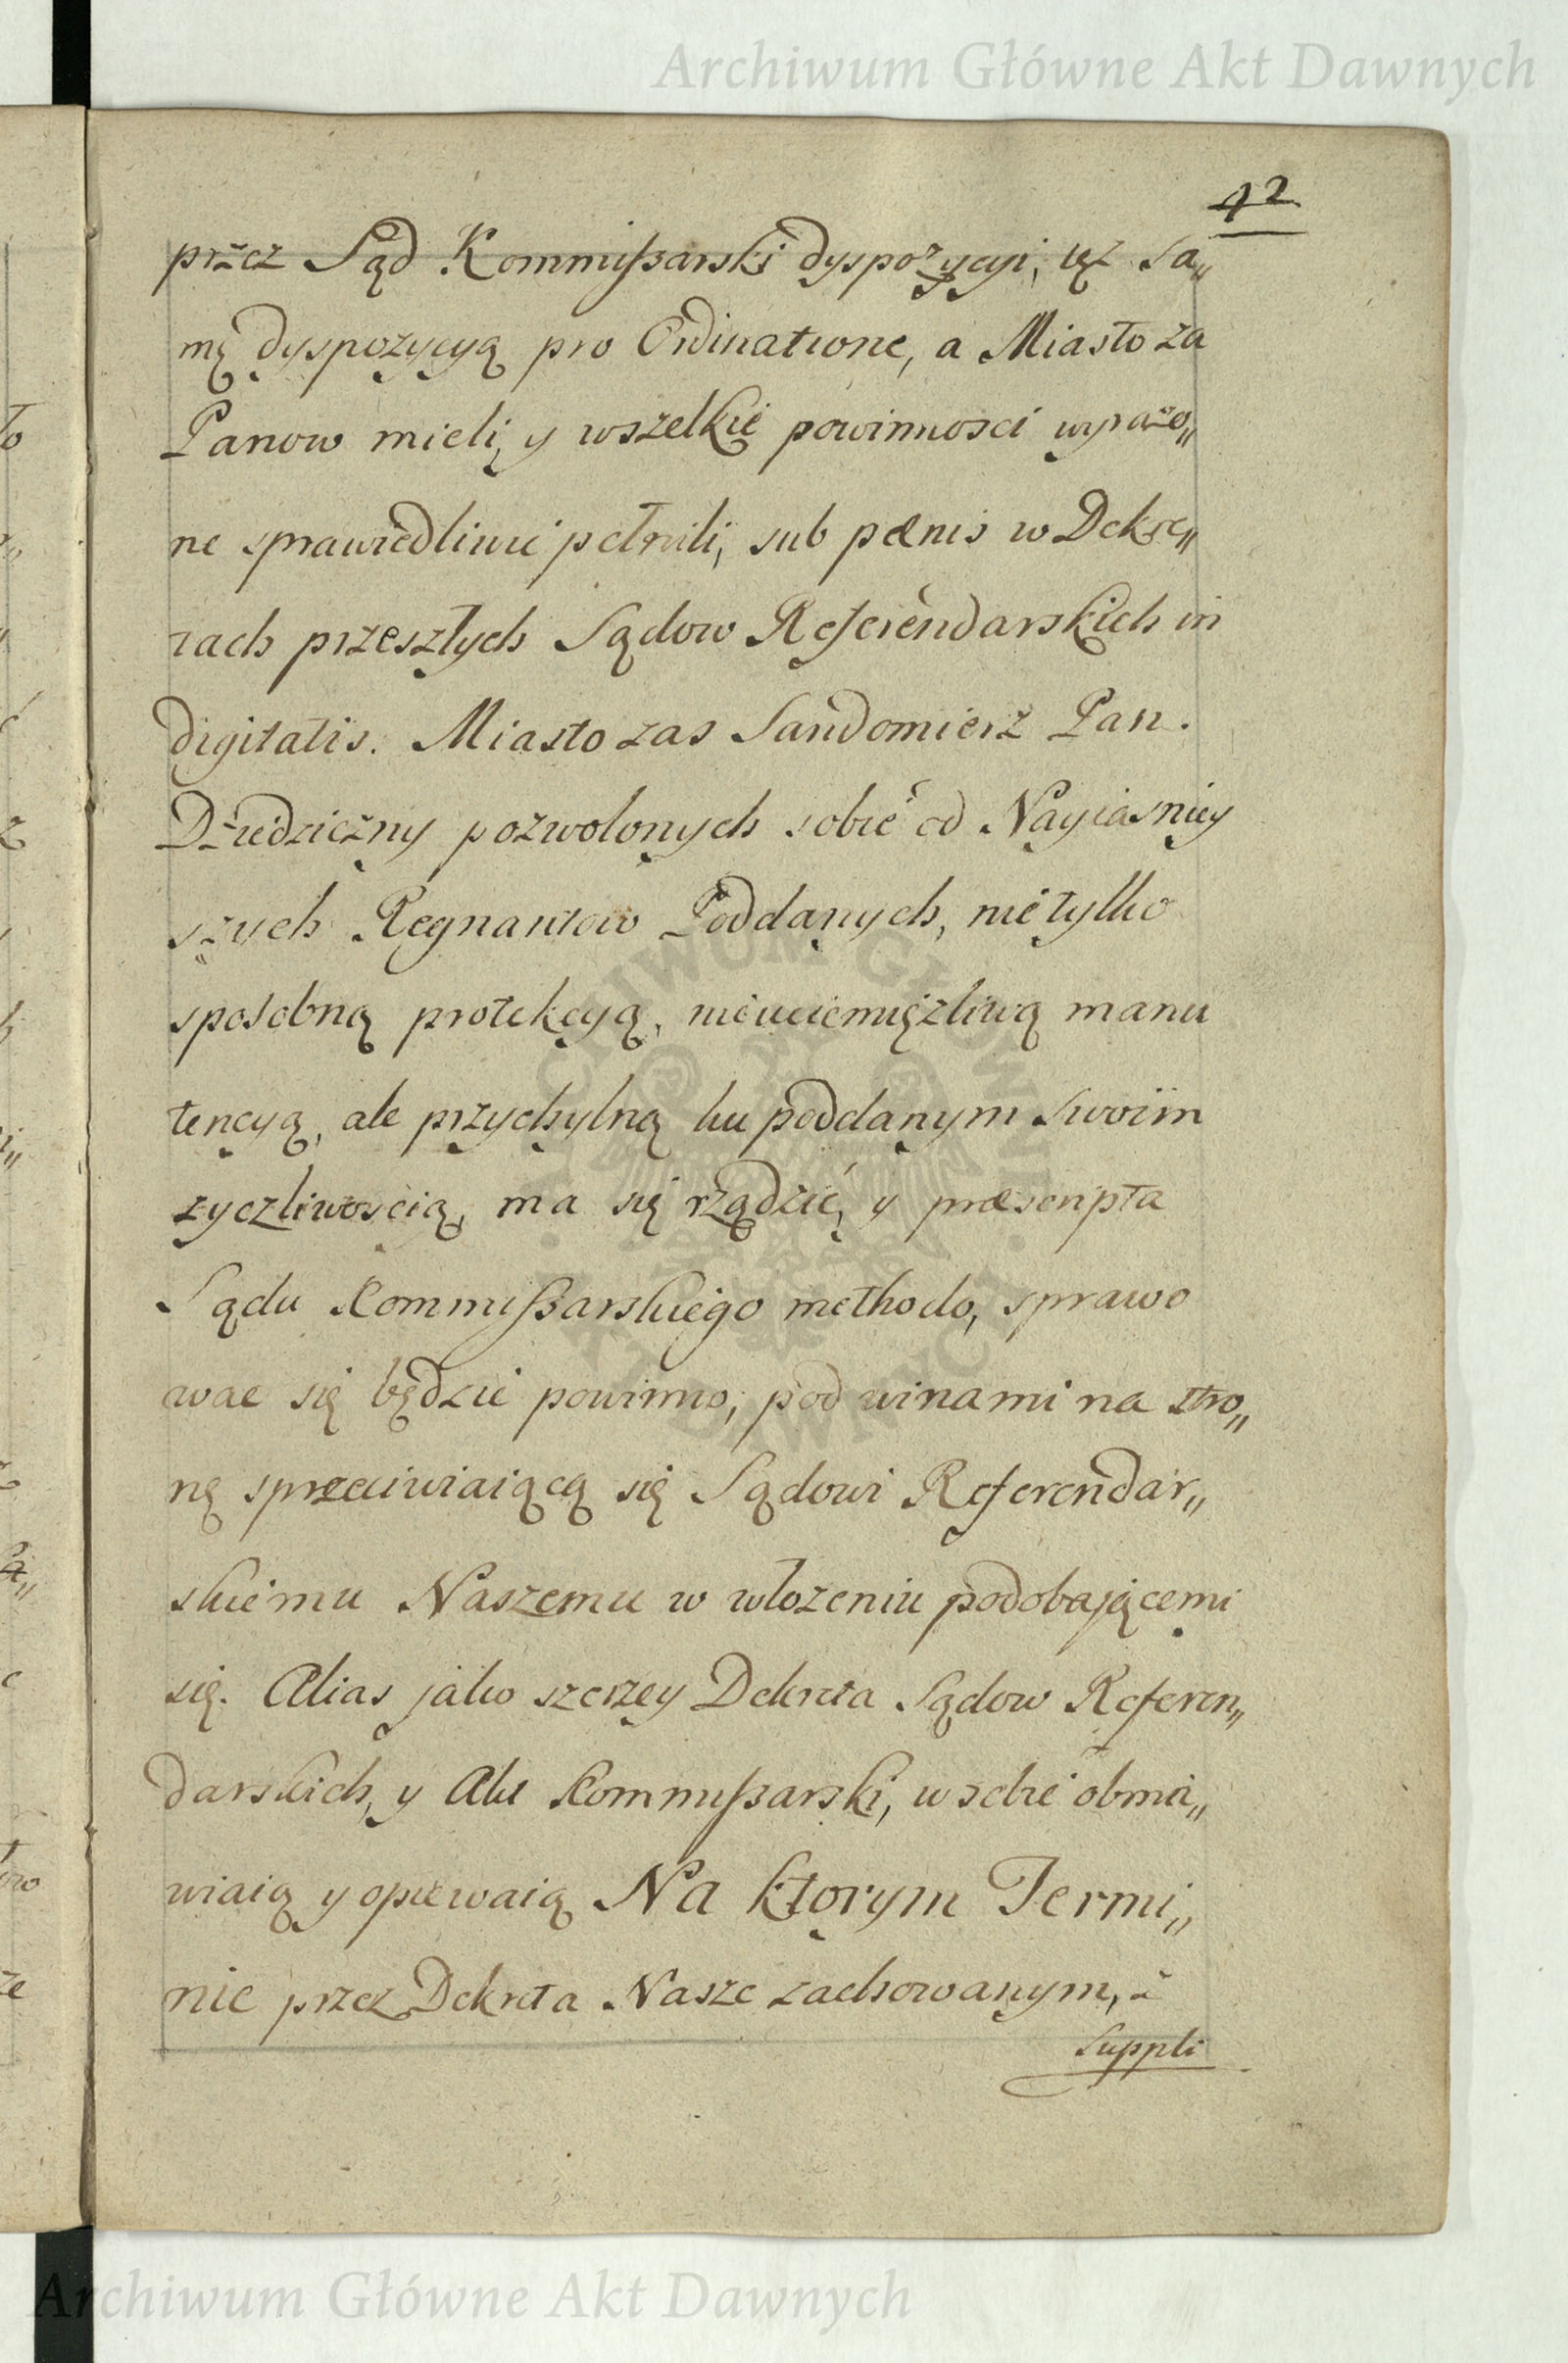 Archiwum Główne Akt Dawnych
42
przez Sąd Kommißarski dyspozycyi, tęż sa„
mę dyspozycyą pro Ordinatione, a Miasto za
Panow mieli, y wszelkie powinnosci wyrażo„
ne sprawiedliwie pełnili, sub pænis w Dekre„
tach przeszłych Sądow Referendarskich in
digitatis. Miasto zas Sandomierz Pan.
Dziedziczny pozwolonych sobie od Nayiasniey
szych Regnantow Poddanych, nie tylko
sposobną protekcyą, nieuciemiężliwą manu
tencyą, ale przychylną ku poddanym swoim
zyczliwoscią, ma się rządzić, y præscripta
Sądu Kommißarskiego methodo, sprawo
wac się będzie powinno, pod winami na stro„
nę sprzeciwiaiącą się Sądowi Referendar„
skiemu Naszemu w włozeniu podobającemi
się. Alias jako szerzey Dekreta Sądow Referen„
darskich, y Akt Kommißarski, w sobie obma„
wiaią y opiewaią Na ktorym Termi„
nie przez Dekreta Nasze zachowanym, z
Suppli
Archiwum Główne Akt Dawnych